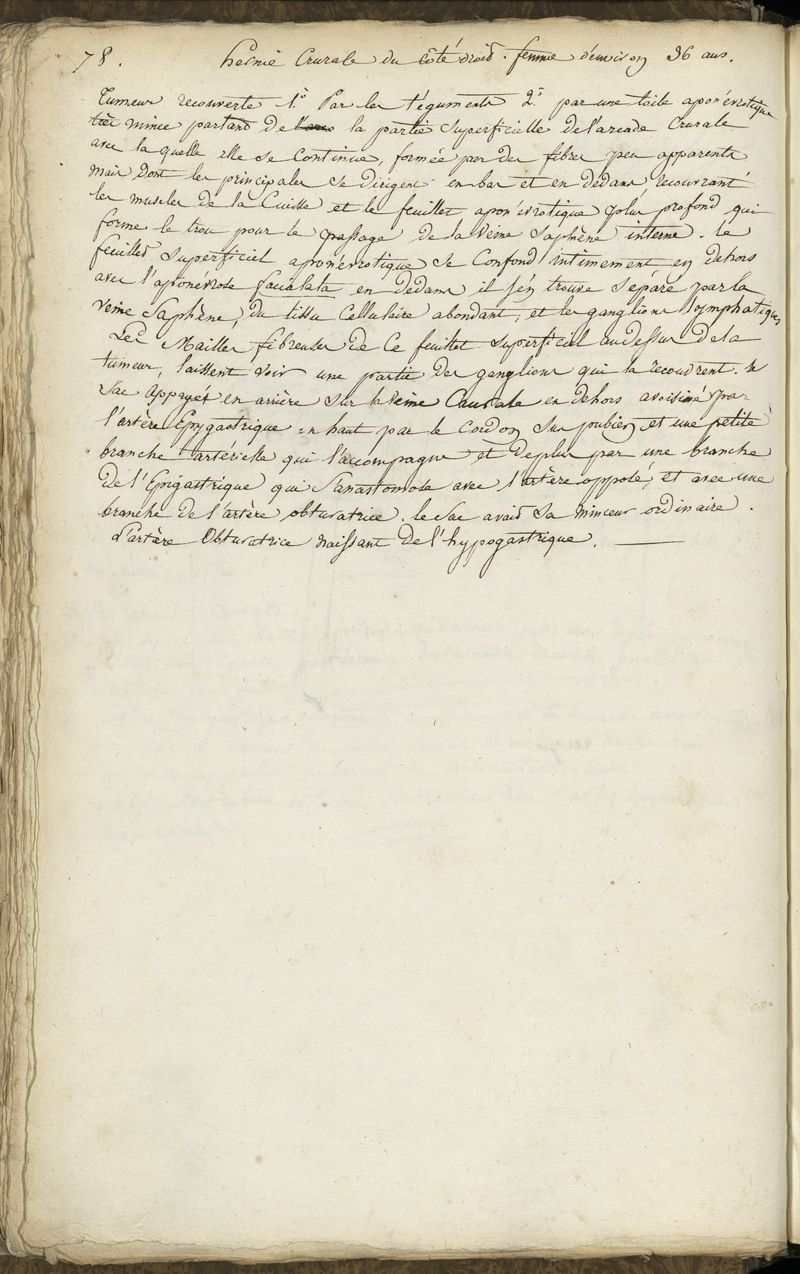 78. hernie Crurale du côté droit. femme d'environ 36 ans.
Tumeur recouverte 1° Par les téguments 2° par une toile aponévrotique
très mince partant de l'arc la partie superficielle de l'arcade Crurale
avec la quelle elle se Continue, formée par des fibres peu apparents
mais dont les principales se dirigent en bas et en dedans recouvrant
les muscles de la Cuisse et le feuillet aponévrotique plus profond qui
forme le trou pour le passage de la Veine Saphène interne. le
feuillet superficiel aponévrotique se Confond intimement en dehors
avec l'aponévrose facialata en dedans il s'en trouve séparé par la
veine Saphène, du tissu Cellulaire abondant, et les ganglions lymphatiques
Les Mailles fibreuses de Ce feuillet superficiel au dessus de la
tumeur, laissent voir une partie des ganglions qui la recouvrent. le
Sac appuyé en arrière sur la Veine Crurale en dehors avoisiné par
l'artère Epygastrique en haut par le Cordon sus pubien et une petite
branche artérielle qui l'accompagne et de plus par une branche
de l'Epigastrique qui s'anastomose avec l'artère opposé, et avec une
branche de l'artère obturatrice. le Sac avait sa minceur ordinaire.
L'artère Obturatrice naissant de l'hypogastrique.